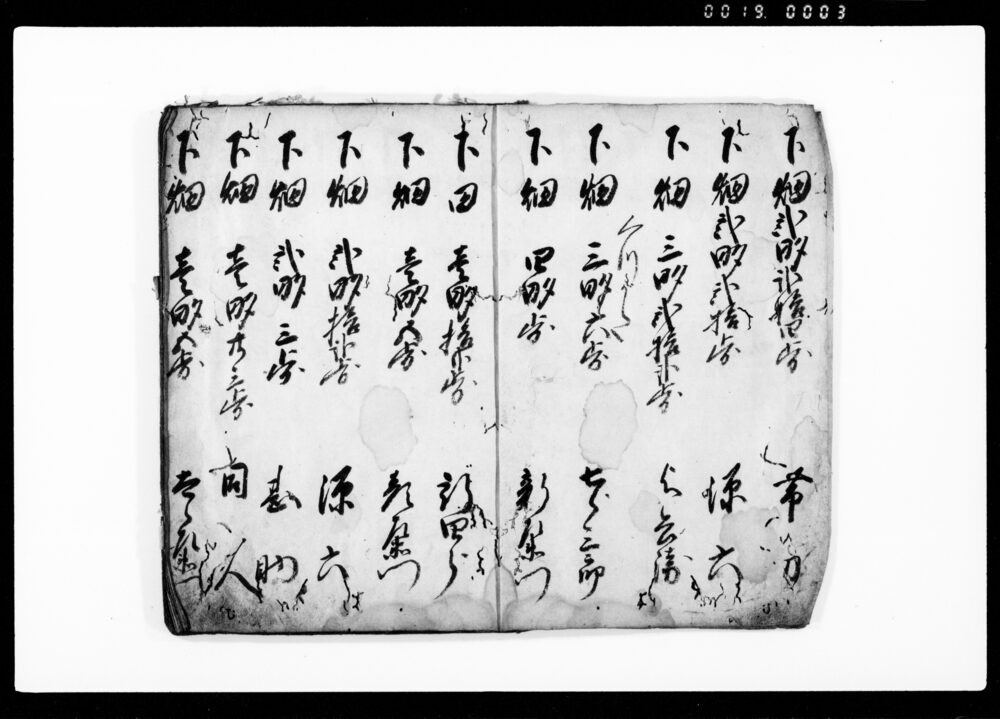 0019. 0003
下畑 弐畝弐拾四歩 帯刀
下畑 弐畝弐拾歩 源六
下畑 三畝弐拾弐歩
下畑 三畝六歩 七郎三郎
下畑 四畝歩 新右衛門
下田 壱畝拾弐歩 新四郎
下畑 壱畝五歩 彦右衛門
下畑 弐畝拾弐歩 源六
下畑 弐畝三歩 甚助
下畑 壱畝廿三歩 同人
下畑 壱畝五歩